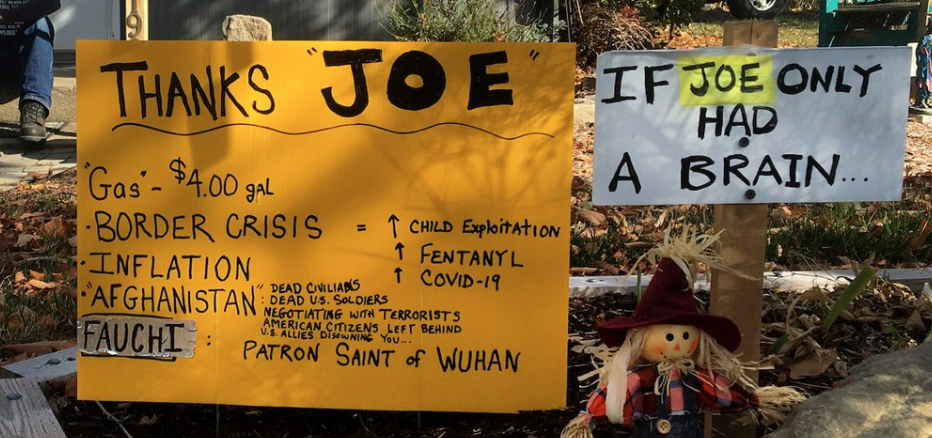 THANKS "JOE"
"Gas" - $4.00 gAL
· BORDER CRISIS = ↑ CHILD Exploitation
↑ FENTANYL
· INFLATION ↑ COVID-19
· "AFGHANISTAN" : DEAD CIVILIANS
DEAD U.S. SOLDIERS
NEGOTIATING WITH TERRORISTS
AMERICAN CITIZENS LEFT BEHIND
U.S. ALLIES DISOWNING YOU...
FAUCHI : PATRON SAINT of WUHAN
IF JOE ONLY
HAD
A BRAIN...
9